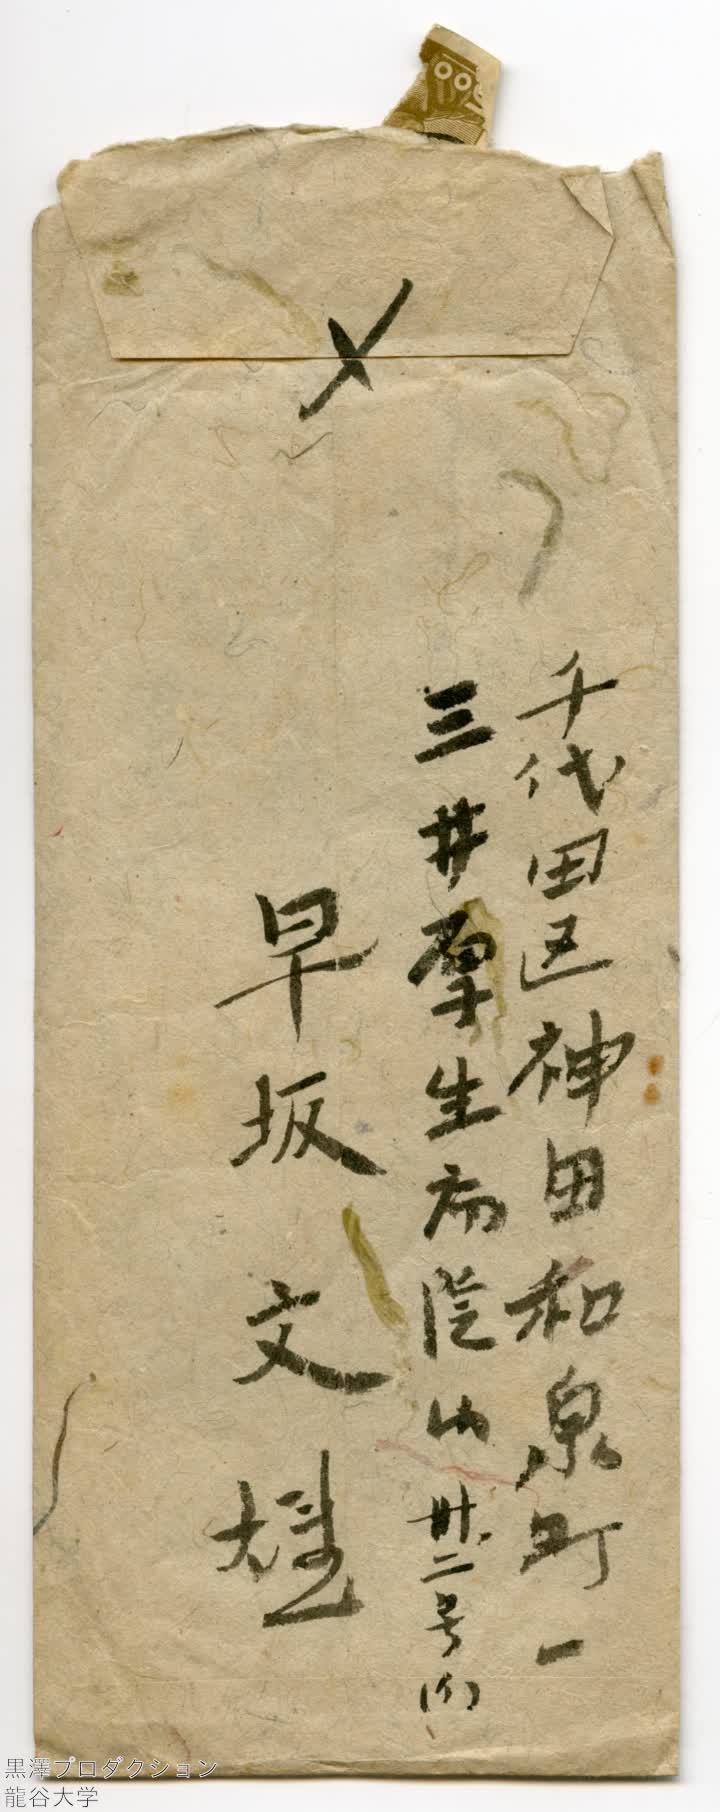 〆
千代田区神田和泉町一
三井厚生病院内 卅二号
早坂文雄
黒澤プロダクション
龍谷大学